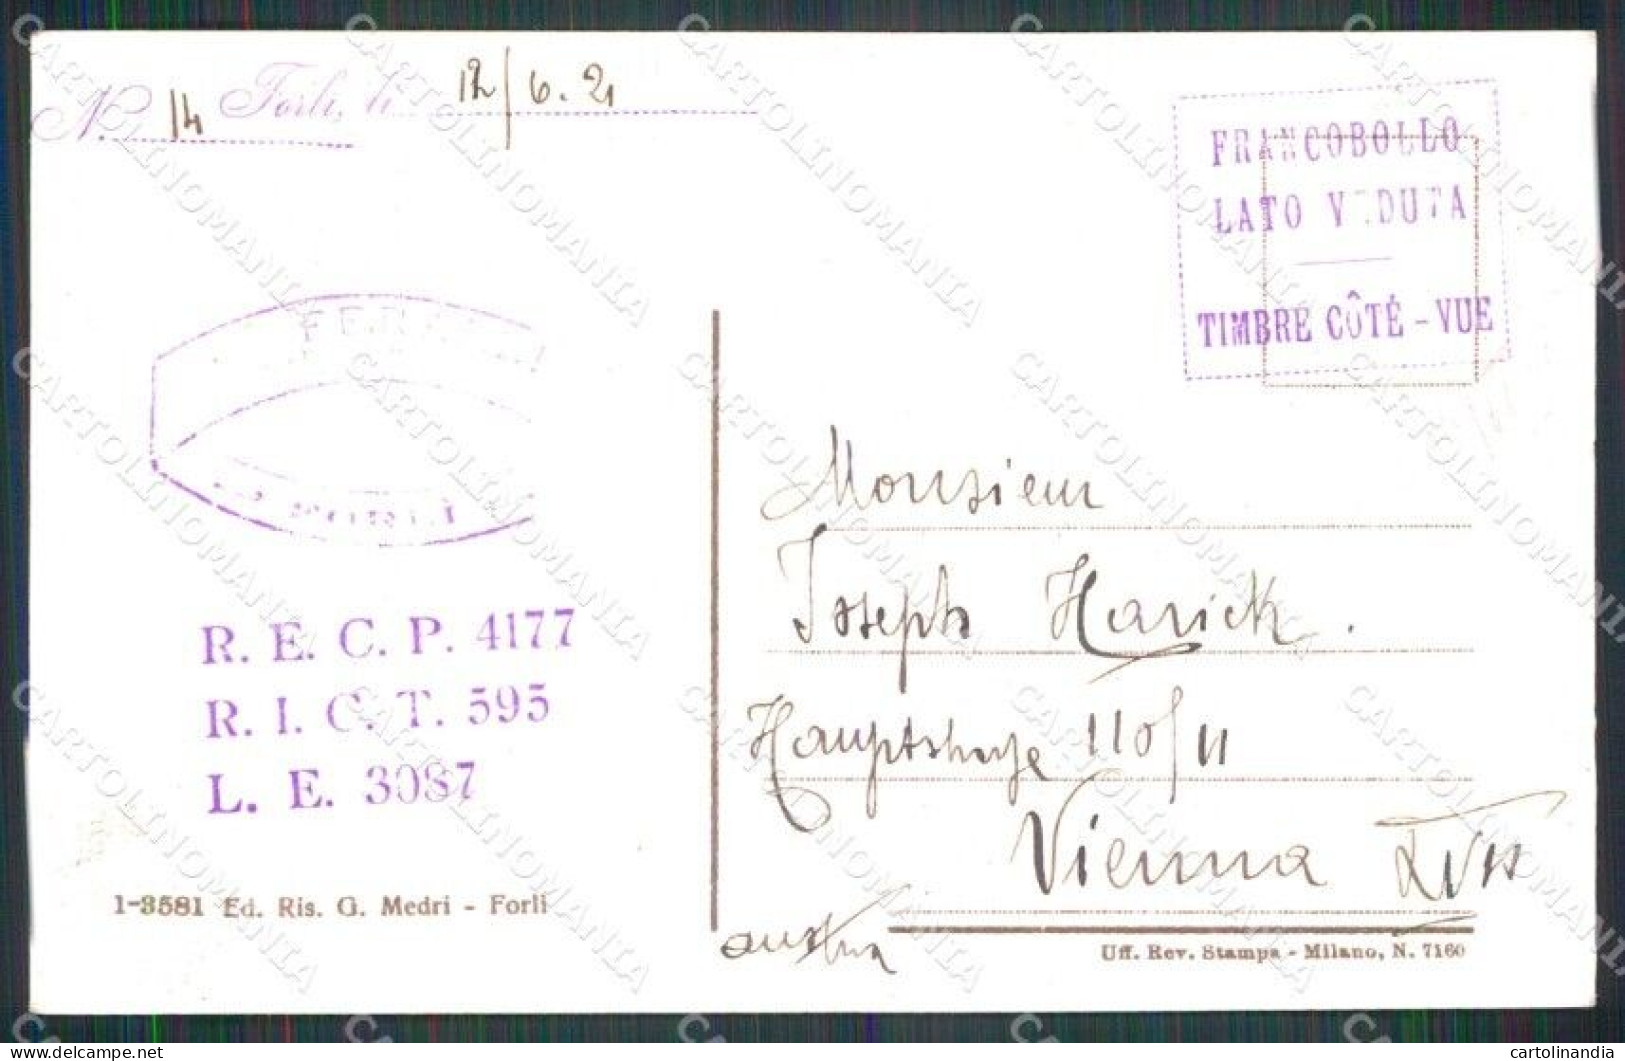 N. 14 Forlì, li 12/6.21
FRANCOBOLLO
LATO VEDUTA
TIMBRE CÔTÉ - VUE
FORLÌ
R. E. C. P. 4177
R. I. C. T. 595
L. E. 3087
Monsieur
Joseph Harick.
Hauptstrasse 110/11
Vienna XVII
Austria
1-3581 Ed. Ris. G. Medri - Forlì
Uff. Rev. Stampa - Milano, N. 7160
CARTOLINOMANIA
cartolinandia